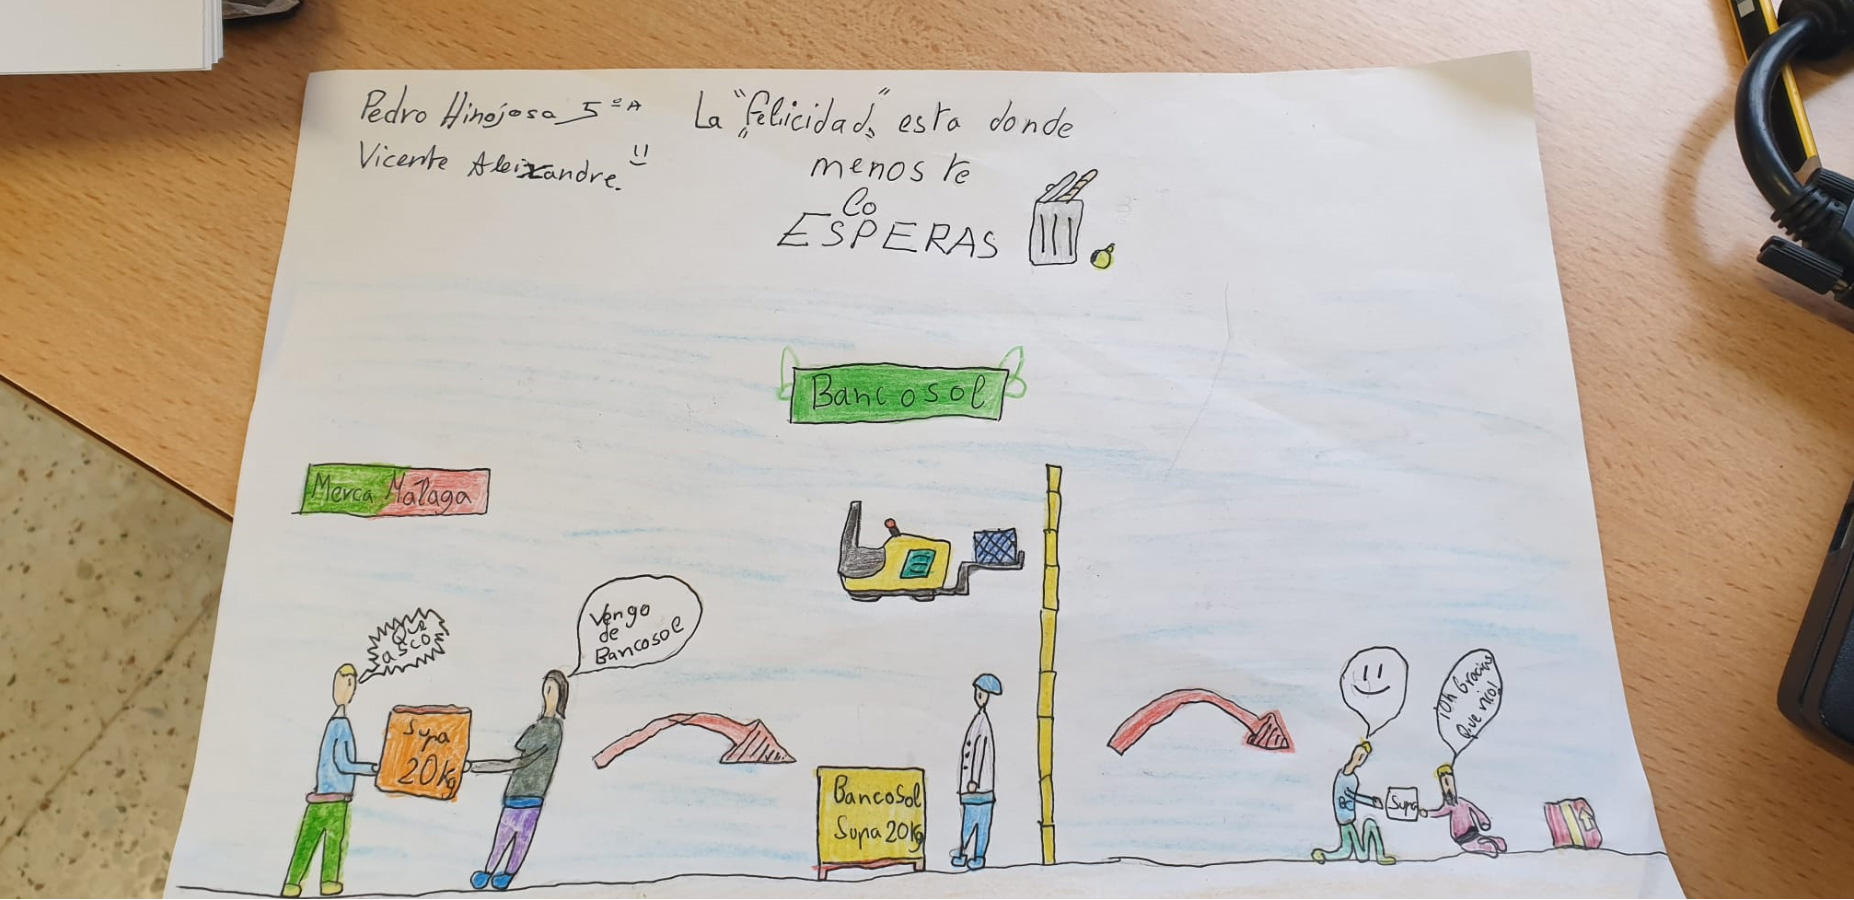 Pedro Hinojosa 5º A
Vicente Aleixandre.
La "felicidad" esta donde
menos te
lo
ESPERAS
Bancosol
Merca Malaga
Que
asco
Vengo
de
Bancosol
Supa
20kg
Bancosol
Supa 20kg
Supa
¡Oh Gracias
Que rico!